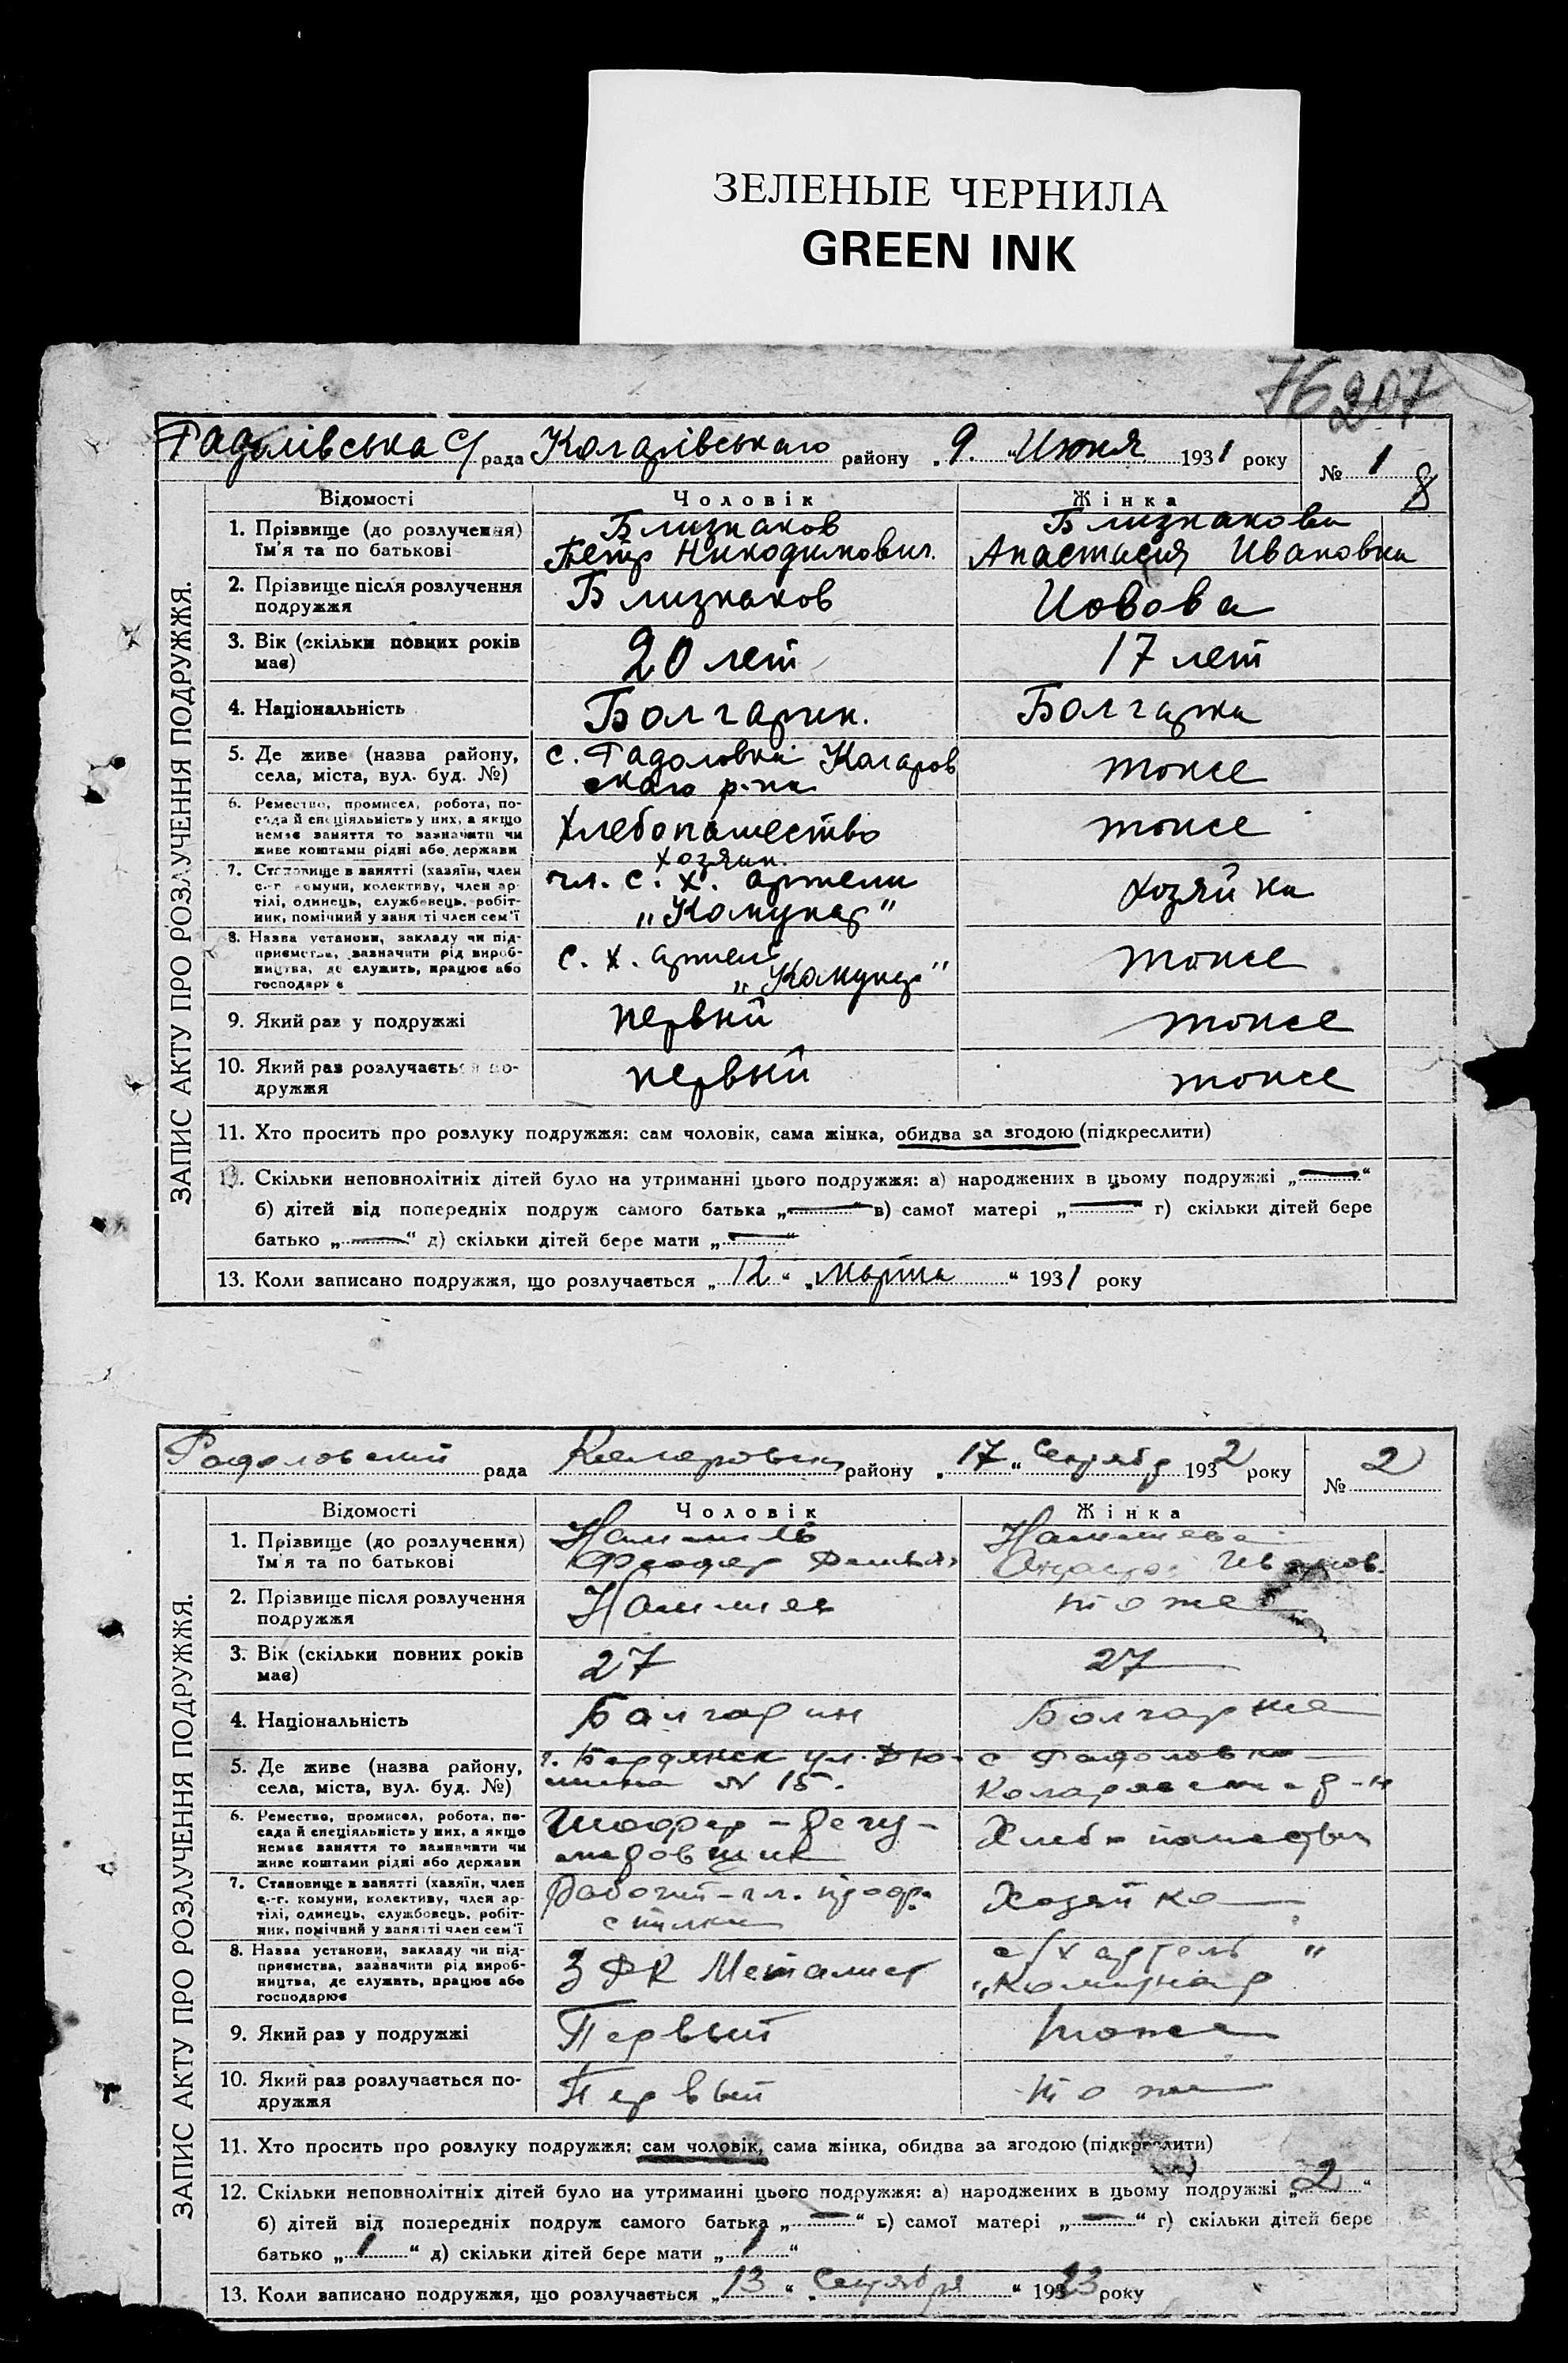 ЗЕЛЕНЫЕ ЧЕРНИЛА
GREEN INK
76 207
Радолівська С/рада Коларівського району „9.“ „Июня 1931 року № 1
8
ЗАПИС АКТУ ПРО РОЗЛУЧЕННЯ ПОДРУЖЖЯ.
Відомості Чоловік Жінка
1. Прізвище (до розлучення) Близнаков Близнакова
ім'я та по батькові Петр Никодимович. Анастасия Ивановна
2. Прізвище після розлучення Близнаков Иовова
подружжя
3. Вік (скільки повних років 20 лет 17 лет
має)
4. Національність Болгарин. Болгарка
5. Де живе (назва району, с. Радоловка Коларов тоже
села, міста, вул. буд. №) ского р-на
6. Ремество, промисел, робота, по-
сада й спеціяльність у них, а якщо Хлебопашество тоже
немає заняття то зазначити чи
живе коштами рідні або держави
хозяин.
7. Становище в занятті (хазяїн, член чл. с. х. артели хозяйка
с.-г. комуни, колективу, член ар-
тілі, одинець, службовець, робіт- „Комунар"
ник, помічний у занятті член сем'ї
8. Назва установи, закладу чи під- с. х. артель тоже
приємства, зазначити рід вироб-
ництва, де служить, працює або „Комунар"
господарює
9. Який раз у подружжі первый тоже
10. Який раз розлучається по- первый тоже
дружжя
11. Хто просить про розлуку подружжя: сам чоловік, сама жінка, обидва за згодою (підкреслити)
12. Скільки неповнолітніх дітей було на утриманні цього подружжя: а) народжених в цьому подружжі „—“
б) дітей від попередніх подруж самого батька „—“ в) самої матері „—“ г) скільки дітей бере
батько „—“ д) скільки дітей бере мати „—“
13. Коли записано подружжя, що розлучається „12“ „Марта“ 1931 року
Радоловский рада району „17“ Сентября 1932 року № 2
ЗАПИС АКТУ ПРО РОЗЛУЧЕННЯ ПОДРУЖЖЯ.
Відомості Чоловік Жінка
1. Прізвище (до розлучення)
ім'я та по батькові Иванов.
2. Прізвище після розлучення тоже
подружжя
3. Вік (скільки повних років 27 27
має)
4. Національність Болгарин Болгарка
5. Де живе (назва району, г. Бердянск ул. Дю- с Радоловка
села, міста, вул. буд. №) мина № 15. Коларовский р-н
6. Ремество, промисел, робота, по- Шофер-регу-
сада й спеціяльність у них, а якщо Хлебопашество
немає заняття то зазначити чи лировщик
живе коштами рідні або держави
7. Становище в занятті (хазяїн, член Рабочий-чл. проф. Хозяйка
с.-г. комуни, колективу, член ар-
тілі, одинець, службовець, робіт- спилки
ник, помічний у занятті член сем'ї
8. Назва установи, закладу чи під- с/х артель
приємства, зазначити рід вироб- З Р К Металист
ництва, де служить, працює або „Комунар"
господарює
9. Який раз у подружжі Первый тоже
10. Який раз розлучається по- Первый тоже
дружжя
11. Хто просить про розлуку подружжя: сам чоловік, сама жінка, обидва за згодою (підкреслити)
12. Скільки неповнолітніх дітей було на утриманні цього подружжя: а) народжених в цьому подружжі „2“
б) дітей від попередніх подруж самого батька „—“ в) самої матері „—“ г) скільки дітей бере
батько „1“ д) скільки дітей бере мати „1“
13. Коли записано подружжя, що розлучається „13“ „Сентября“ 1923 року